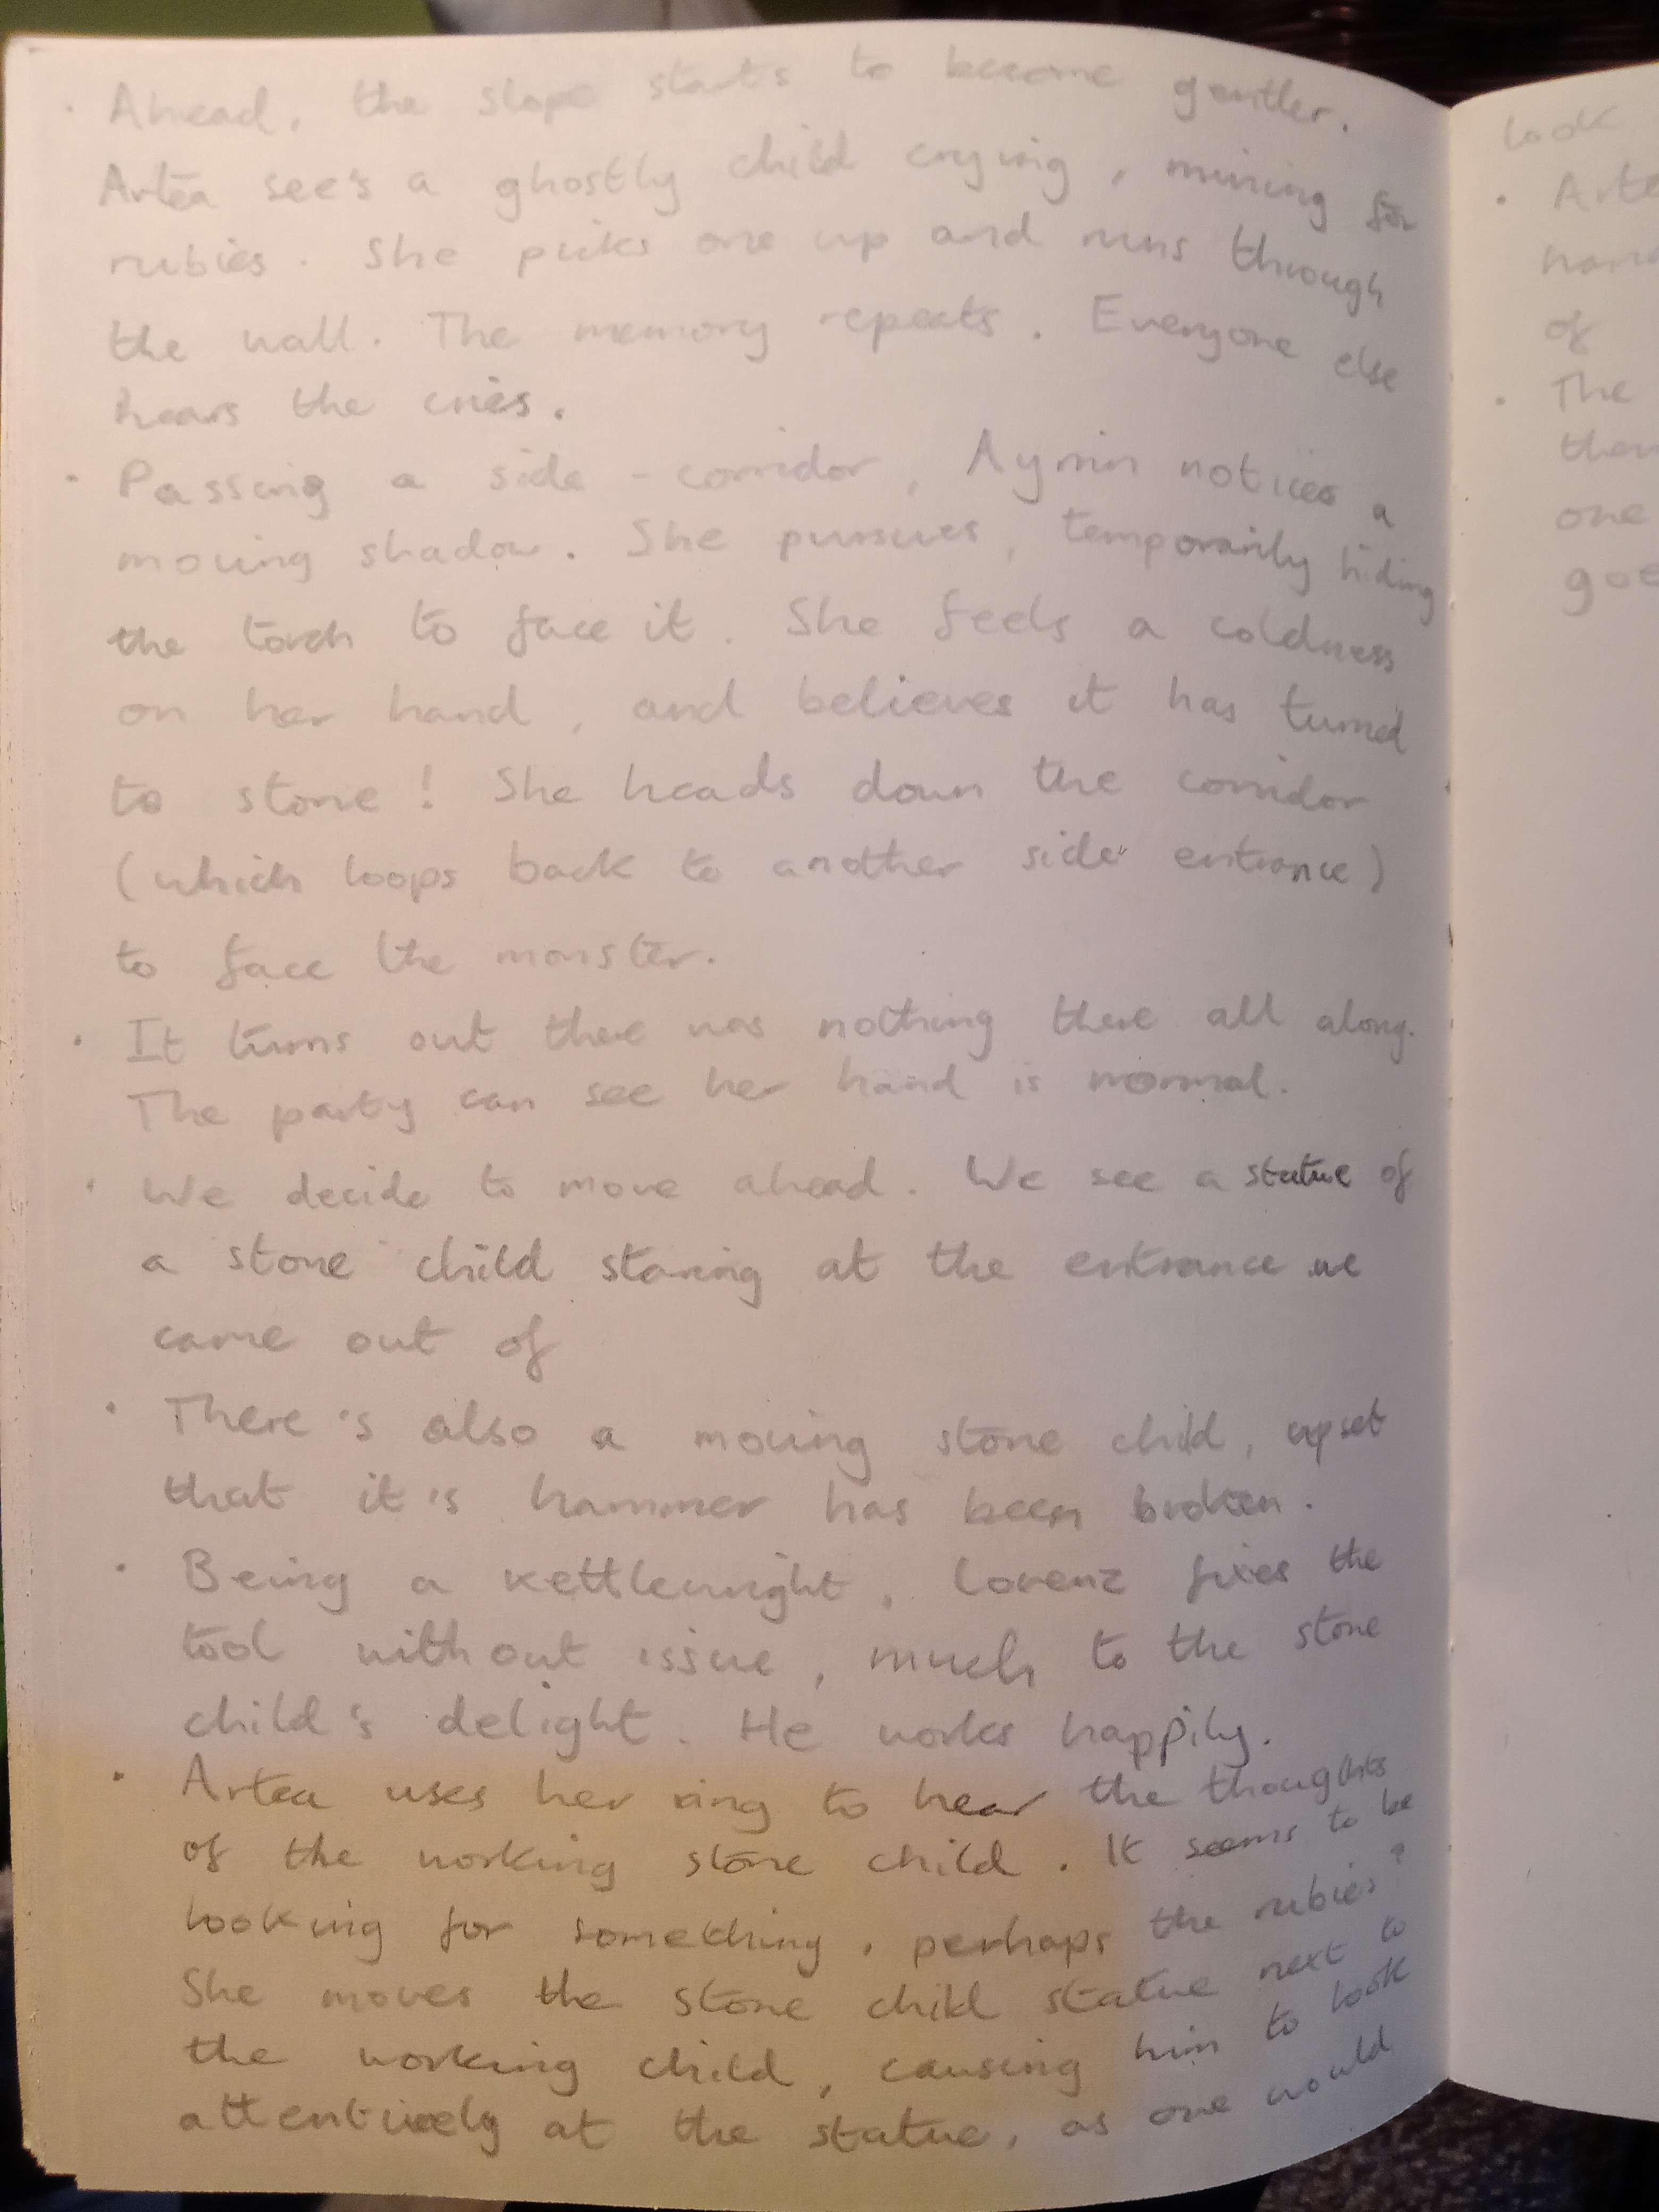 · Ahead, the slope starts to become gentler.
Artea see's a ghostly child crying, mining for
rubies. She picks one up and runs through
the wall. The memory repeats. Everyone else
hears the cries.
· Passing a side-corridor, Aymin notices a
moving shadow. She pursues, temporarily hiding
the torch to face it. She feels a coldness
on her hand, and believes it has turned
to stone! She heads down the corridor
(which loops back to another side entrance)
to face the monster.
· It turns out there was nothing there all along.
The party can see her hand is normal.
· We decide to move ahead. We see a statue of
a stone child staring at the entrance we
came out of
· There's also a moving stone child, upset
that it's hammer has been broken.
· Being a kettlewright, Lorenz fixes the
tool without issue, much to the stone
child's delight. He works happily.
· Artea uses her ring to hear the thoughts
of the working stone child. It seems to be
looking for something, perhaps the rubies?
She moves the stone child statue next to
the working child, causing him to look
attentively at the statue, as one would
look
· Arte
of
· The
one